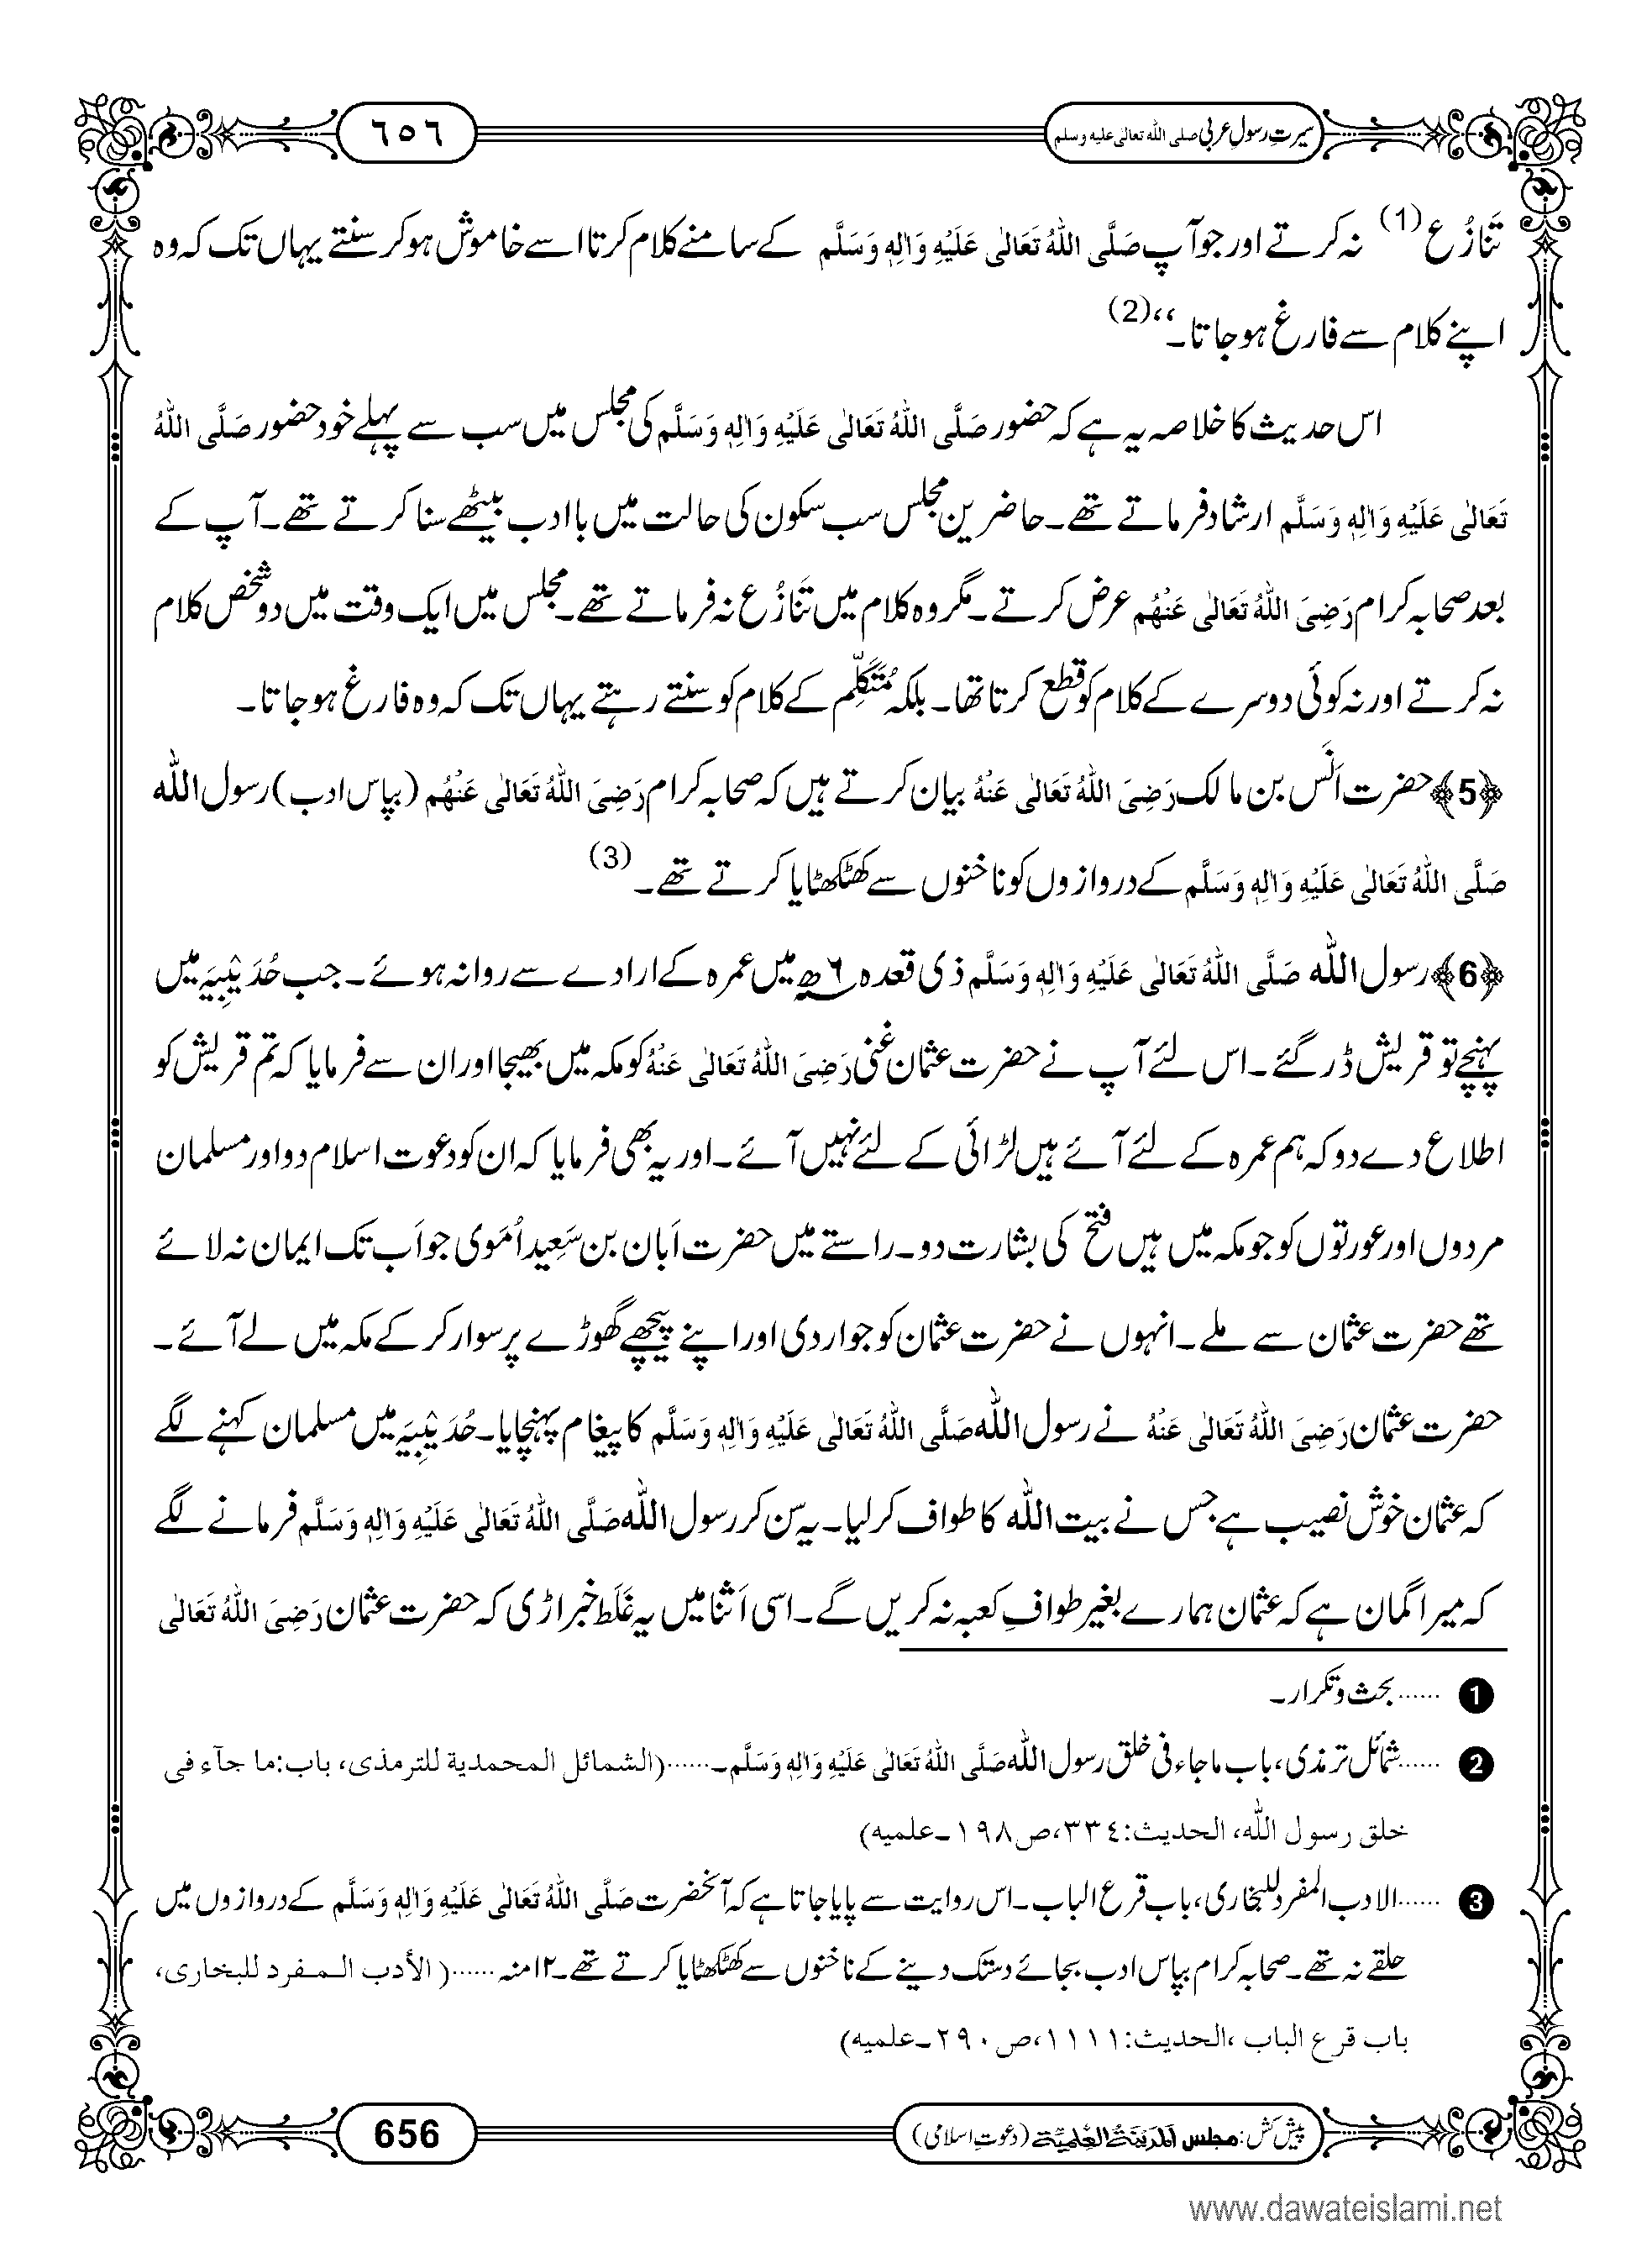 سیرتِ رسولِ عربی صلی اللہ تعالیٰ علیہ وسلم
٦٥٦
تَنازُع(1) نہ کرتے اور جو آپ صَلَّی اللہُ تَعَالٰی عَلَیْہِ وَاٰلِہٖ وَسَلَّم کے سامنے کلام کرتا اسے خاموش ہو کر سنتے یہاں تک کہ وہ
اپنے کلام سے فارغ ہو جاتا۔‘‘(2)
اس حدیث کا خلاصہ یہ ہے کہ حضور صَلَّی اللہُ تَعَالٰی عَلَیْہِ وَاٰلِہٖ وَسَلَّم کی مجلس میں سب سے پہلے خود حضور صَلَّی اللہُ
تَعَالٰی عَلَیْہِ وَاٰلِہٖ وَسَلَّم ارشاد فرماتے تھے۔ حاضرین مجلس سب سکون کی حالت میں باادب بیٹھے سنا کرتے تھے۔ آپ کے
بعد صحابہ کرام رَضِیَ اللہُ تَعَالٰی عَنْہُم عرض کرتے۔ مگر وہ کلام میں تَنازُع نہ فرماتے تھے۔ مجلس میں ایک وقت میں دو شخص کلام
نہ کرتے اور نہ کوئی دوسرے کے کلام کو قطع کرتا تھا۔ بلکہ مُتَکَلِّم کے کلام کو سنتے رہتے یہاں تک کہ وہ فارغ ہو جاتا۔
﴿5﴾ حضرت اَنَس بن مالک رَضِیَ اللہُ تَعَالٰی عَنْہُ بیان کرتے ہیں کہ صحابہ کرام رَضِیَ اللہُ تَعَالٰی عَنْہُم (بپاس ادب) رسول اللہ
صَلَّی اللہُ تَعَالٰی عَلَیْہِ وَاٰلِہٖ وَسَلَّم کے دروازوں کو ناخنوں سے کھٹکھٹایا کرتے تھے۔(3)
﴿6﴾ رسول اللہ صَلَّی اللہُ تَعَالٰی عَلَیْہِ وَاٰلِہٖ وَسَلَّم ذی قعدہ ۶ھ میں عمرہ کے ارادے سے روانہ ہوئے۔ جب حُدَیْبِیَہ میں
پہنچے تو قریش ڈر گئے۔ اس لئے آپ نے حضرت عثمان غنی رَضِیَ اللہُ تَعَالٰی عَنْہُ کو مکہ میں بھیجا اور ان سے فرمایا کہ تم قریش کو
اطلاع دے دو کہ ہم عمرہ کے لئے آئے ہیں لڑائی کے لئے نہیں آئے۔ اور یہ بھی فرمایا کہ ان کو دعوت اسلام دو اور مسلمان
مردوں اور عورتوں کو جو مکہ میں ہیں فتح کی بشارت دو۔ راستے میں حضرت اَبان بن سَعِید اُمَوی جو اَب تک ایمان نہ لائے
تھے حضرت عثمان سے ملے۔ انہوں نے حضرت عثمان کو جوار دی اور اپنے پیچھے گھوڑے پر سوار کر کے مکہ میں لے آئے۔
حضرت عثمان رَضِیَ اللہُ تَعَالٰی عَنْہُ نے رسول اللہ صَلَّی اللہُ تَعَالٰی عَلَیْہِ وَاٰلِہٖ وَسَلَّم کا پیغام پہنچایا۔ حُدَیْبِیَہ میں مسلمان کہنے لگے
کہ عثمان خوش نصیب ہے جس نے بیت اللہ کا طواف کر لیا۔ یہ سن کر رسول اللہ صَلَّی اللہُ تَعَالٰی عَلَیْہِ وَاٰلِہٖ وَسَلَّم فرمانے لگے
کہ میرا گمان ہے کہ عثمان ہمارے بغیر طوافِ کعبہ نہ کریں گے۔ اسی اَثنا میں یہ غَلَط خبر اڑی کہ حضرت عثمان رَضِیَ اللہُ تَعَالٰی
1 ...... بحث و تکرار۔
2 ...... شمائل ترمذی، باب ما جاء فی خلق رسول اللہ صَلَّی اللہُ تَعَالٰی عَلَیْہِ وَاٰلِہٖ وَسَلَّم۔......(الشمائل المحمدية للترمذی، باب:ما جآء فی
خلق رسول الله، الحدیث:٣٣٤،ص١٩٨۔علمیه)
3 ...... الادب المفرد للبخاری، باب قرع الباب۔ اس روایت سے پایا جاتا ہے کہ آنحضرت صَلَّی اللہُ تَعَالٰی عَلَیْہِ وَاٰلِہٖ وَسَلَّم کے دروازوں میں
حلقے نہ تھے۔ صحابہ کرام بپاس ادب بجائے دستک دینے کے ناخنوں سے کھٹکھٹایا کرتے تھے۔ ۱۲منہ ......(الأدب المفرد للبخاری،
باب قرع الباب ،الحدیث:١١١١،ص٢٩٠۔علمیه)
پیش کش: مجلس المدینۃ العلمیۃ (دعوتِ اسلامی)
656
www.dawateislami.net